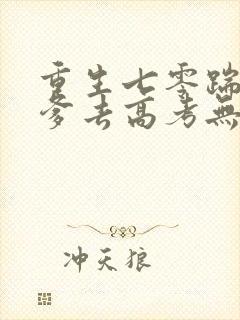 重生七零踹
爹去高考無
冲天狼